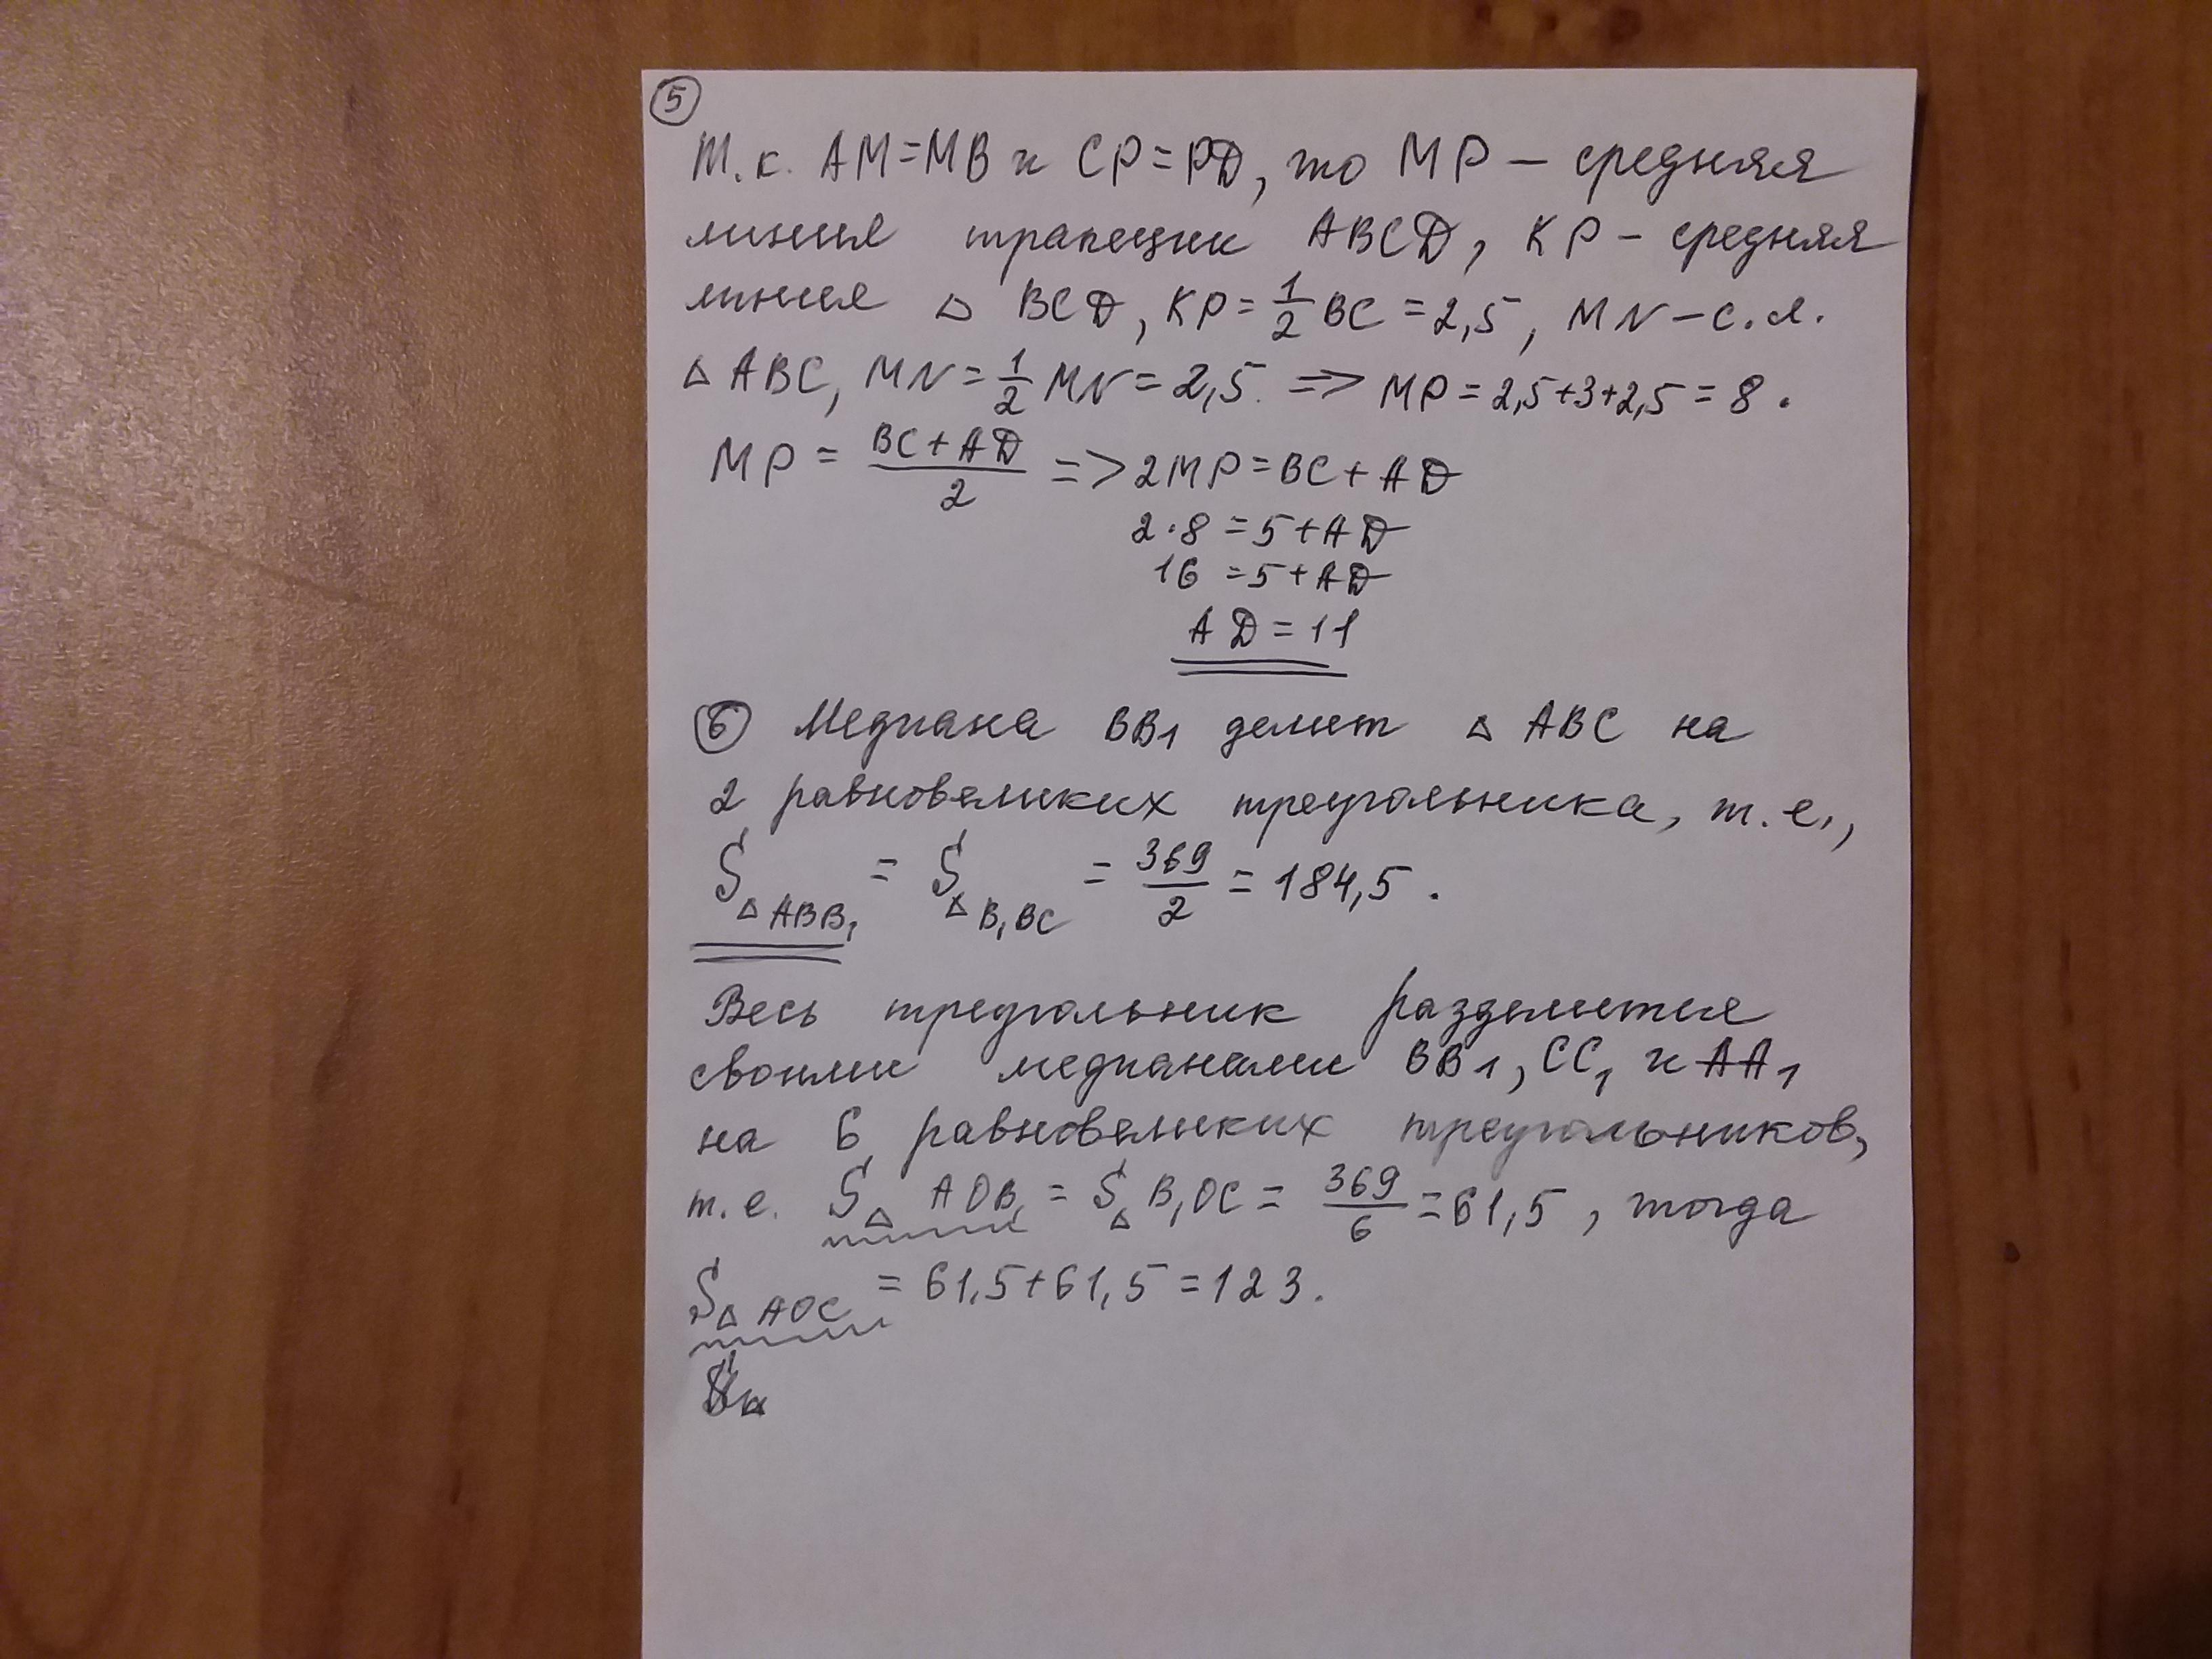 5
Т.к. AM=MB и CP=PD, то MP – средняя
линия трапеции ABCD, KP – средняя
линия △ BCD, KP=1/2 BC=2,5, MN – с.л.
△ ABC, MN=1/2 MN=2,5. => MP=2,5+3+2,5=8.
MP = (BC+AD)/2 => 2MP=BC+AD
2·8=5+AD
16=5+AD
AD=11
6 Медиана BB1 делит △ ABC на
2 равновеликих треугольника, т.е.,
S△ABB₁ = S△B₁BC = 369/2 = 184,5.
Весь треугольник разделится
своими медианами BB1, CC₁ и AA₁
на 6 равновеликих треугольников,
т.е. S△ AOB₁ = S△ B₁OC = 369/6 = 61,5, тогда
S△AOC = 61,5+61,5=123.